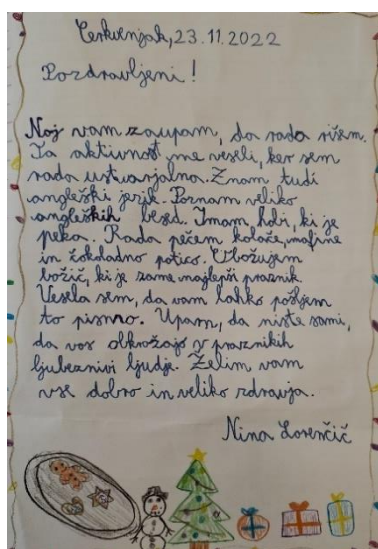 Cerkvenjak, 23.11.2022
Pozdravljeni!
Naj vam zaupam, da rada rišem.
Ta aktivnost me veseli, ker sem
rada ustvarjalna. Znam tudi
angleški jezik. Poznam veliko
angleških besed. Imam hobi, ki je
peka. Rada pečem kolače, mafine
in čokoladno potico. Obožujem
božič, ki je zame najlepši praznik.
Vesela sem, da vam lahko pošljem
to pismo. Upam, da niste sami,
da vas obkrožajo v praznikih
ljubeznivi ljudje. Želim vam
vse dobro in veliko zdravja.
Nina Lorenčič